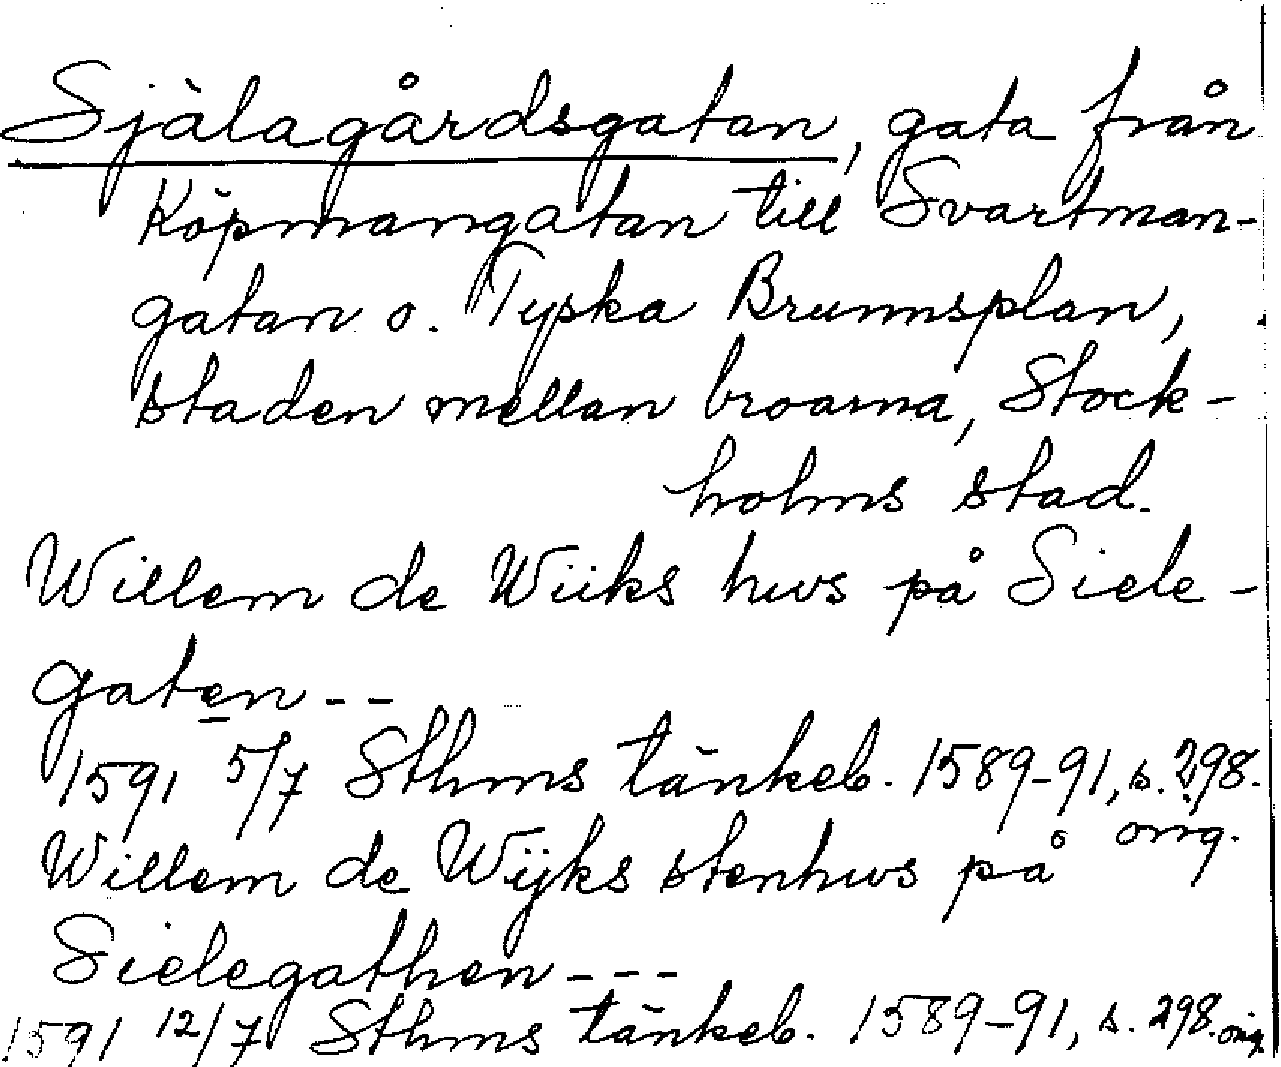 Själagårdsgatan, gata från
Köpmangatan till Svartman-
gatan o. Tyska Brunnsplan,
staden mellan broarna, Stock-
holms stad.
Willem de Wiiks hws på Siele-
gaten --
1591 5/7 Sthms tänkeb. 1589-91, s. 298.
orig.
Willem de Wijks stenhws på
Sielegathen ---
1591 12/7 Sthms tänkeb. 1589-91, s. 298. orig.